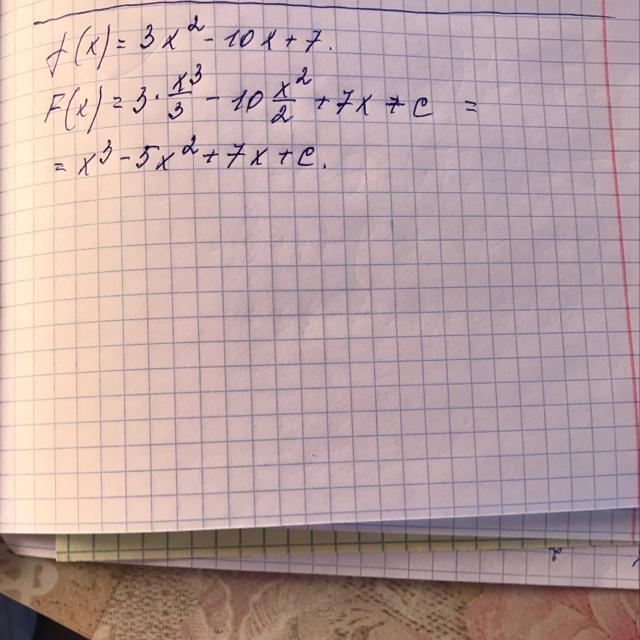 f(x) = 3x² - 10x + 7.
F(x) = 3 · x³/3 - 10 x²/2 + 7x + c =
= x³ - 5x² + 7x + c.